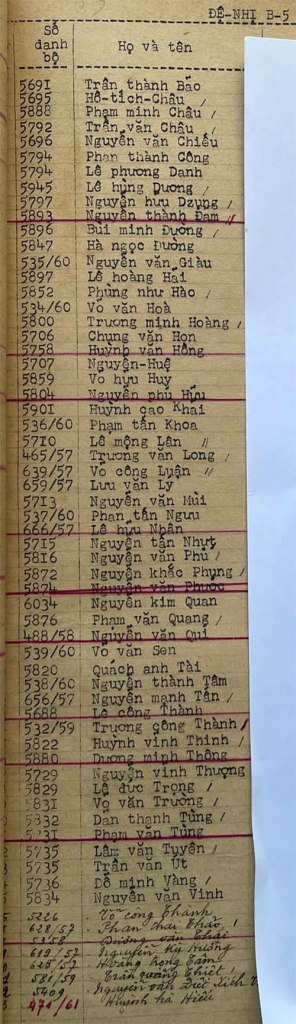 ĐỆ-NHỊ B-5
Số danh bộ Họ và tên
5691 Trần thành Bảo
5695 Hồ-tích-Châu /
5888 Phạm minh Châu /
5792 Trần văn Châu /
5696 Nguyễn văn Chiểu
5794 Phan thành Công
5794 Lê phương Danh
5945 Lê hùng Dương /
5797 Nguyễn hưu Dzụng /
5893 Nguyễn thành Đam //
5896 Bùi minh Đường /
5847 Hà ngọc Đường
535/60 Nguyễn văn Giàu
5897 Lê hoàng Hải
5852 Phùng như Hào /
534/60 Vo văn Hoà
5800 Trương minh Hoàng /
5706 Chung văn Hon
5758 Huỳnh văn Hồng
5707 Nguyễn-Huệ
5859 Vo hưu Huy
5804 Nguyễn phú Hưu
5901 Huỳnh cao Khai
536/60 Phạm tấn Khoa
5710 Lê mộng Lân //
465/57 Trương văn Long /
639/57 Vo công Luận //
659/57 Lưu văn Lý
5713 Nguyễn văn Mùi
537/60 Phan tấn Ngưu
666/57 Lê hưu Nhân
5715 Nguyễn tấn Nhựt
5816 Nguyễn văn Phú /
5872 Nguyễn khắc Phụng /
5874 Nguyễn văn Phước
6034 Nguyễn kim Quan
5876 Phạm văn Quang /
488/58 Nguyễn văn Qui
539/60 Vo văn Sen
5820 Quách anh Tài
538/60 Nguyễn thành Tâm
656/57 Nguyễn mạnh Tân /
5688 Lê công Thành
532/59 Trương công Thành /
5822 Huỳnh vinh Thinh /
5880 Dương minh Thông
5729 Nguyễn vinh Thượng
5829 Lê đưc Trọng /
5831 Vo văn Trường /
5832 Dan thạnh Tùng /
5731 Phạm văn Tùng
5735 Lâm văn Tuyên /
5735 Trần văn Ut
5736 Đỗ minh Vàng /
5834 Nguyễn văn Vinh
5226 Võ công Thanh
628/57 Phan thái Thảo /
5358 Dương văn Thái
619/57 Nguyễn Hưởng
625/57 Hoàng trọng Tâm
581/59 Trần quang Thiết /
5409 Nguyễn văn Đức
471/61 Huỳnh hà Hiếu